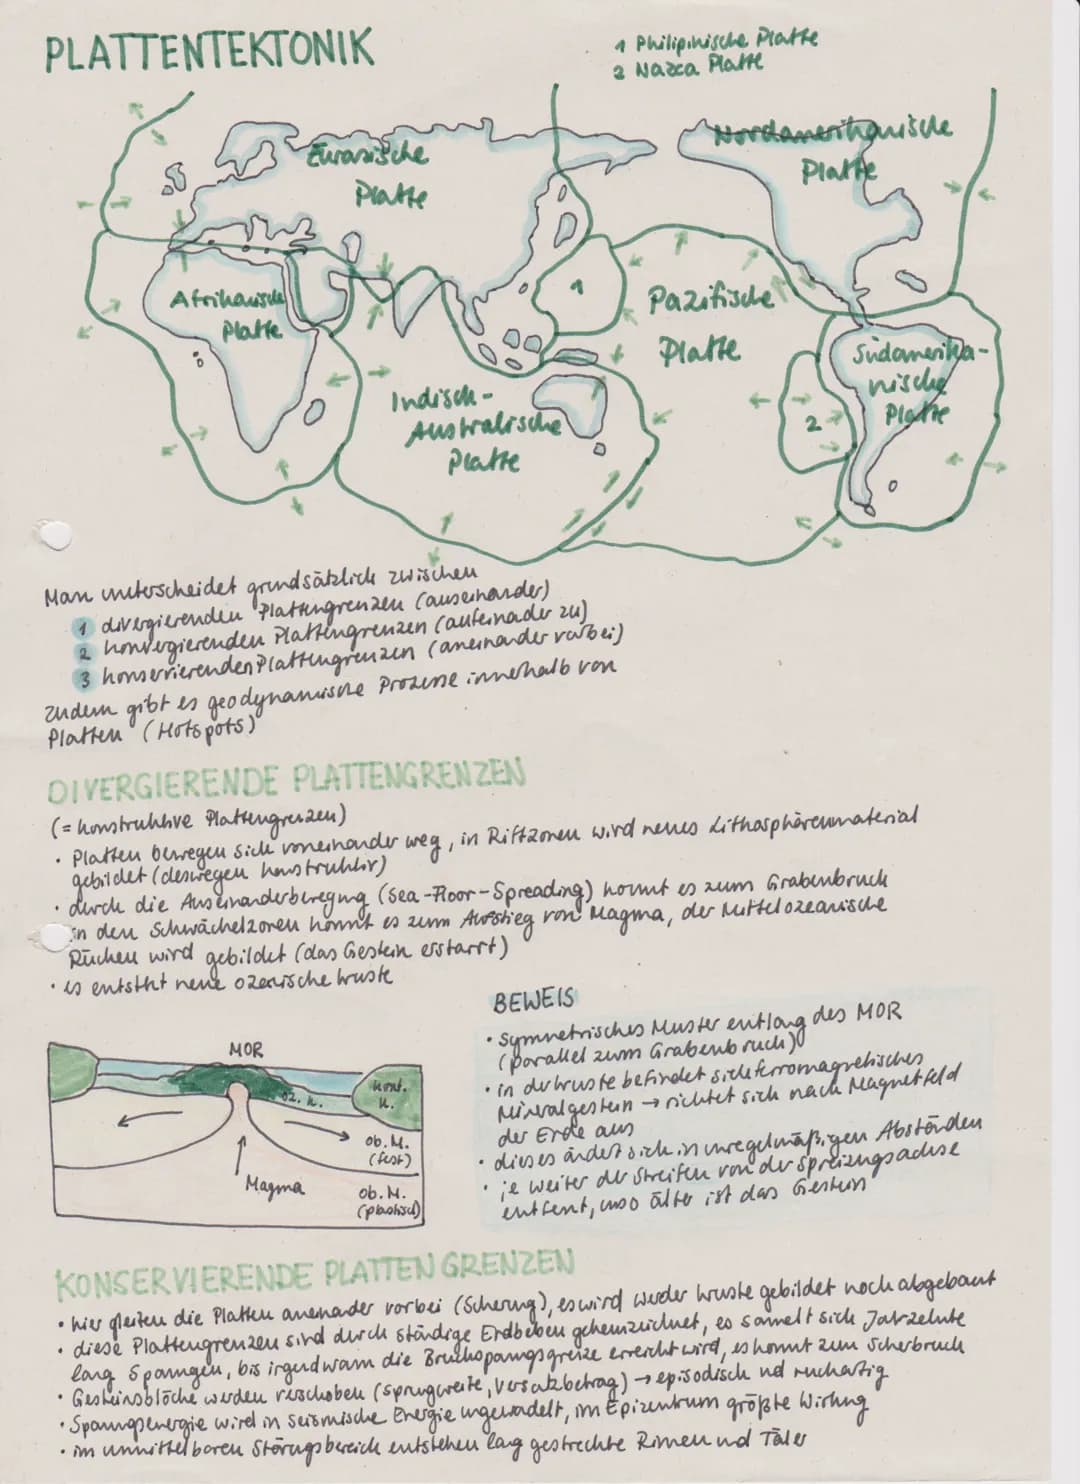 PLATTENTEKTONIK
1 Philipinische Platte
2 Nazca Platte
Eurasische
Platte
Nordamerikanische
Platte
Afrikanische
Platte
1
Pazifische
Platte
Indisch-
Australische
Platte
2
Südamerika-
nische
Platte
Man unterscheidet grundsätzlich zwischen
1 divergierenden Plattengrenzen (auseinander)
2 konvergierenden Plattengrenzen (aufeinader zu)
3 konservierenden Plattengrenzen (aneinander vorbei)
zudem gibt es geodynamische Prozesse innerhalb von
Platten (Hotspots)
DIVERGIERENDE PLATTENGRENZEN
(= konstruktive Plattengrenzen)
• Platten bewegen sich voneinander weg, in Riftzonen wird neues Lithosphärenmaterial
gebildet (deswegen konstruktiv)
• durch die Auseinanderbewegung (Sea-Floor-Spreading) kommt es zum Grabenbruch
in den Schwächelzonen kommt es zum Aufstieg von Magma, der Mittelozeanische
Rücken wird gebildet (das Gestein erstarrt)
• es entsteht neue ozeanische Kruste
MOR
oz. K.
kont.
K.
ob. M.
(fest)
Magma
ob. M.
(plastisch)
BEWEIS
• symmetrisches Muster entlang des MOR
(parallel zum Grabenbruch)
• in der Kruste befindet sich ferromagnetisches
Mineralgestein → richtet sich nach Magnetfeld
der Erde aus
• dieses ändert sich in unregelmäßigen Abständen
• je weiter der Streifen von der Spreizungsachse
entfernt, umso älter ist das Gestein
KONSERVIERENDE PLATTENGRENZEN
• hier gleiten die Platten aneinander vorbei (Scherung), es wird weder Kruste gebildet noch abgebaut
• diese Plattengrenzen sind durch ständige Erdbeben gekennzeichnet, es samelt sich Jahrzehnte
lang Spannungen, bis irgendwann die Bruchspannungsgrenze erreicht wird, es kommt zum Scherbruch
• Gesteinsblöcke werden verschoben (Sprungweite, Versatzbetrag) → episodisch und ruckartig
• Spannungsenergie wird in seismische Energie umgewandelt, im Epizentrum größte Wirkung
• im unmittelbaren Störungsbereich entstehen lang gestreckte Rinnen und Täler